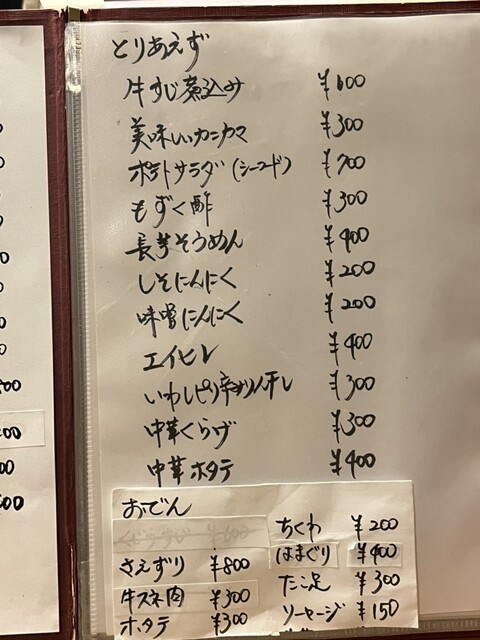 とりあえず
牛すじ煮込み ¥600
美味しいカニカマ ¥300
ポテトサラダ(シーフード) ¥700
もずく酢 ¥300
長芋そうめん ¥400
しそにんにく ¥200
味噌にんにく ¥200
エイヒレ ¥400
いわしピリ辛みりん干し ¥300
中華くらげ ¥300
中華ホタテ ¥400
おでん
¥600
さえずり ¥800
牛スネ肉 ¥300
ホタテ ¥300
ちくわ ¥200
はまぐり ¥400
たこ足 ¥300
ソーセージ ¥150